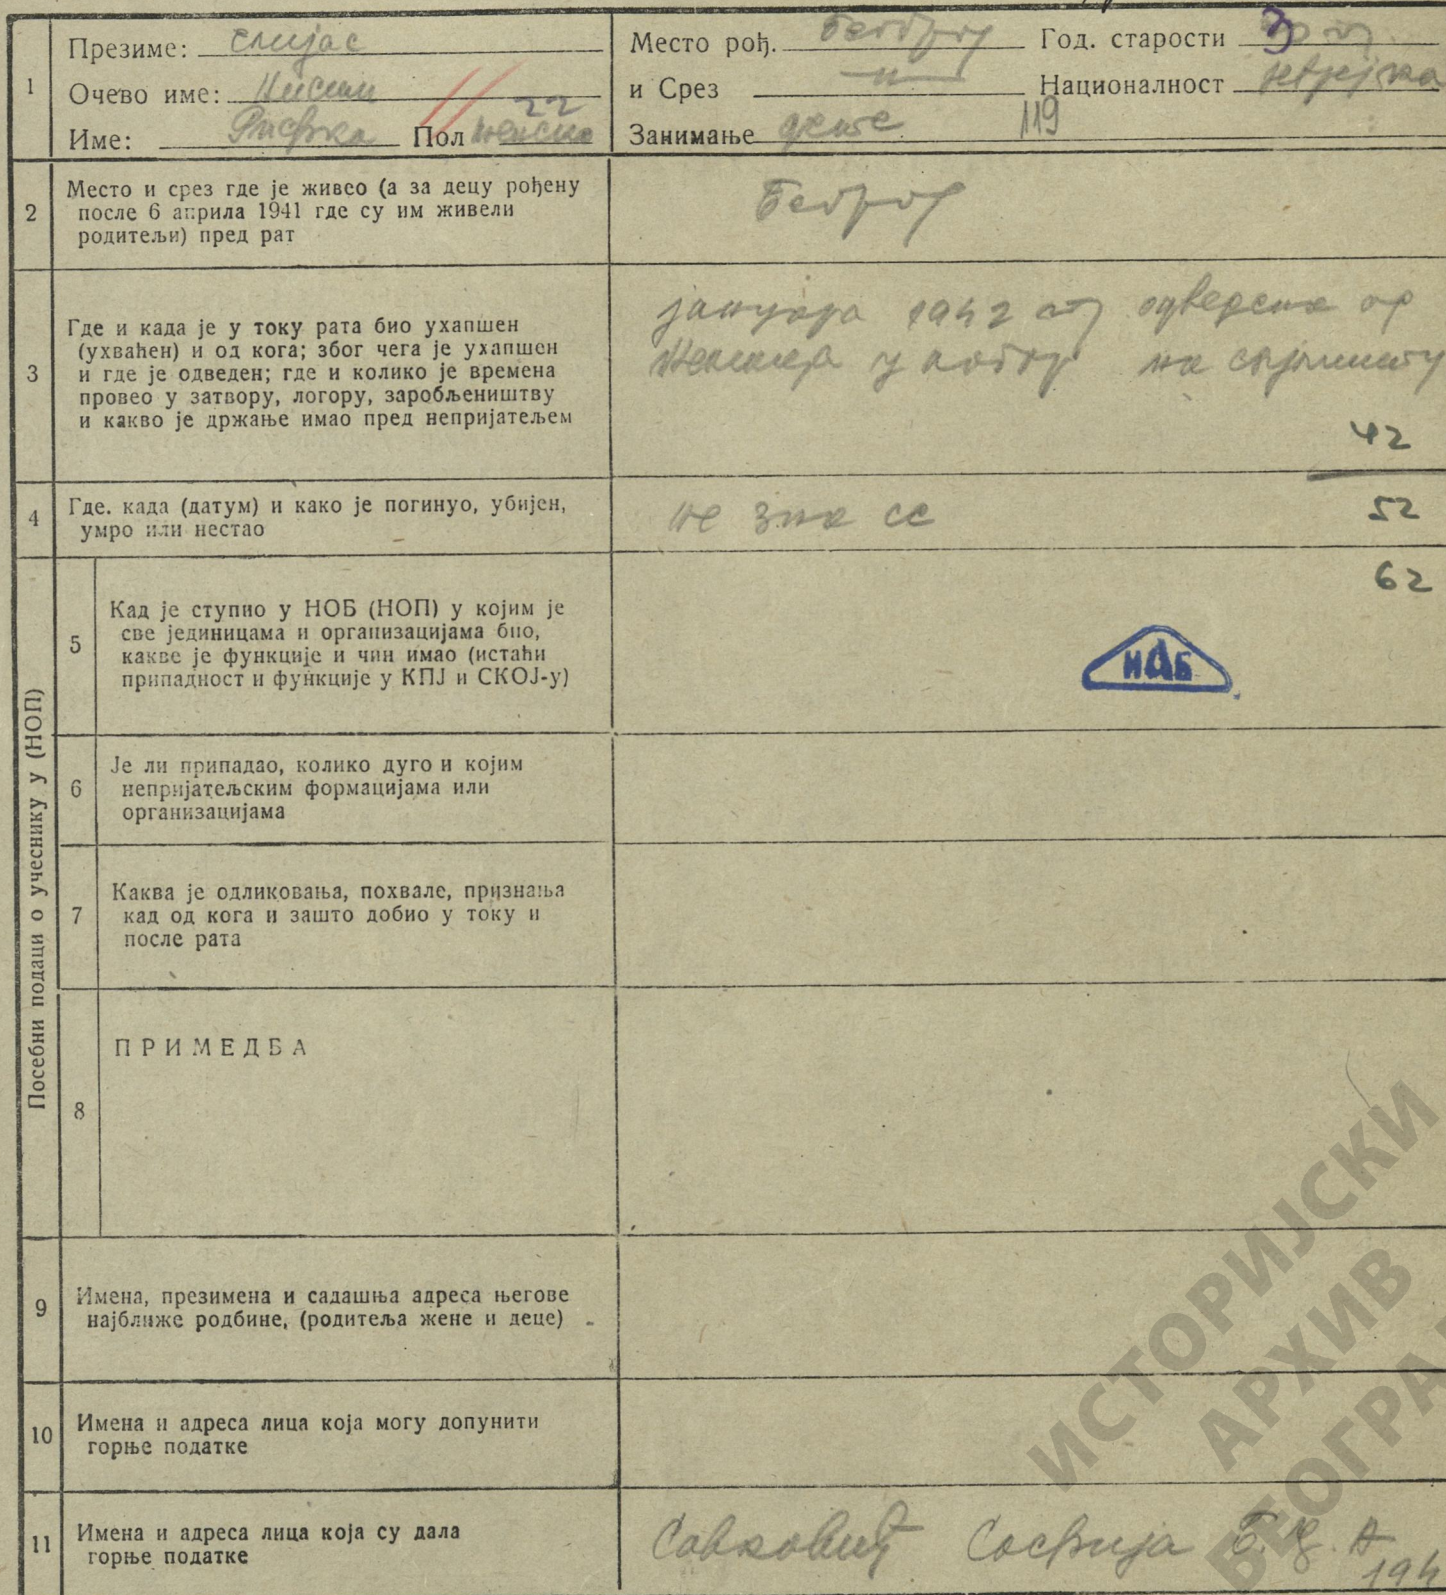 1
Презиме: Елијас
Очево име: Нисим
22
Име: Рифка Пол женско
Место рођ. Београд Год. старости 3 год.
и Срез — " — Националност јеврејка
Занимање дете 119
2
Место и срез где је живео (а за децу рођену
после 6 априла 1941 где су им живели
родитељи) пред рат
Београд
3
Где и када је у току рата био ухапшен
(ухваћен) и од кога; због чега је ухапшен
и где је одведен; где и колико је времена
провео у затвору, логору, заробљеништву
и какво је држање имао пред непријатељем
јануара 1942 год одведена од
Немаца у логор на сајмишту
42
4
Где. када (датум) и како је погинуо, убијен,
умро или нестао
не зна се
52
Посебни подаци о учеснику у (НОП)
62
5
Кад је ступио у НОБ (НОП) у којим је
све јединицама и организацијама био,
какве је функције и чин имао (истаћи
припадност и функције у КПЈ и СКОЈ-у)
ИАБ
6
Је ли припадао, колико дуго и којим
непријатељским формацијама или
организацијама
7
Каква је одликовања, похвале, признања
кад од кога и зашто добио у току и
после рата
8
ПРИМЕДБА
9
Имена, презимена и садашња адреса његове
најближе родбине, (родитеља жене и деце)
10
Имена и адреса лица која могу допунити
горње податке
11
Имена и адреса лица која су дала
горње податке
Савковић Софија
194
ИСТОРИЈСКИ
АРХИВ
БЕОГРА